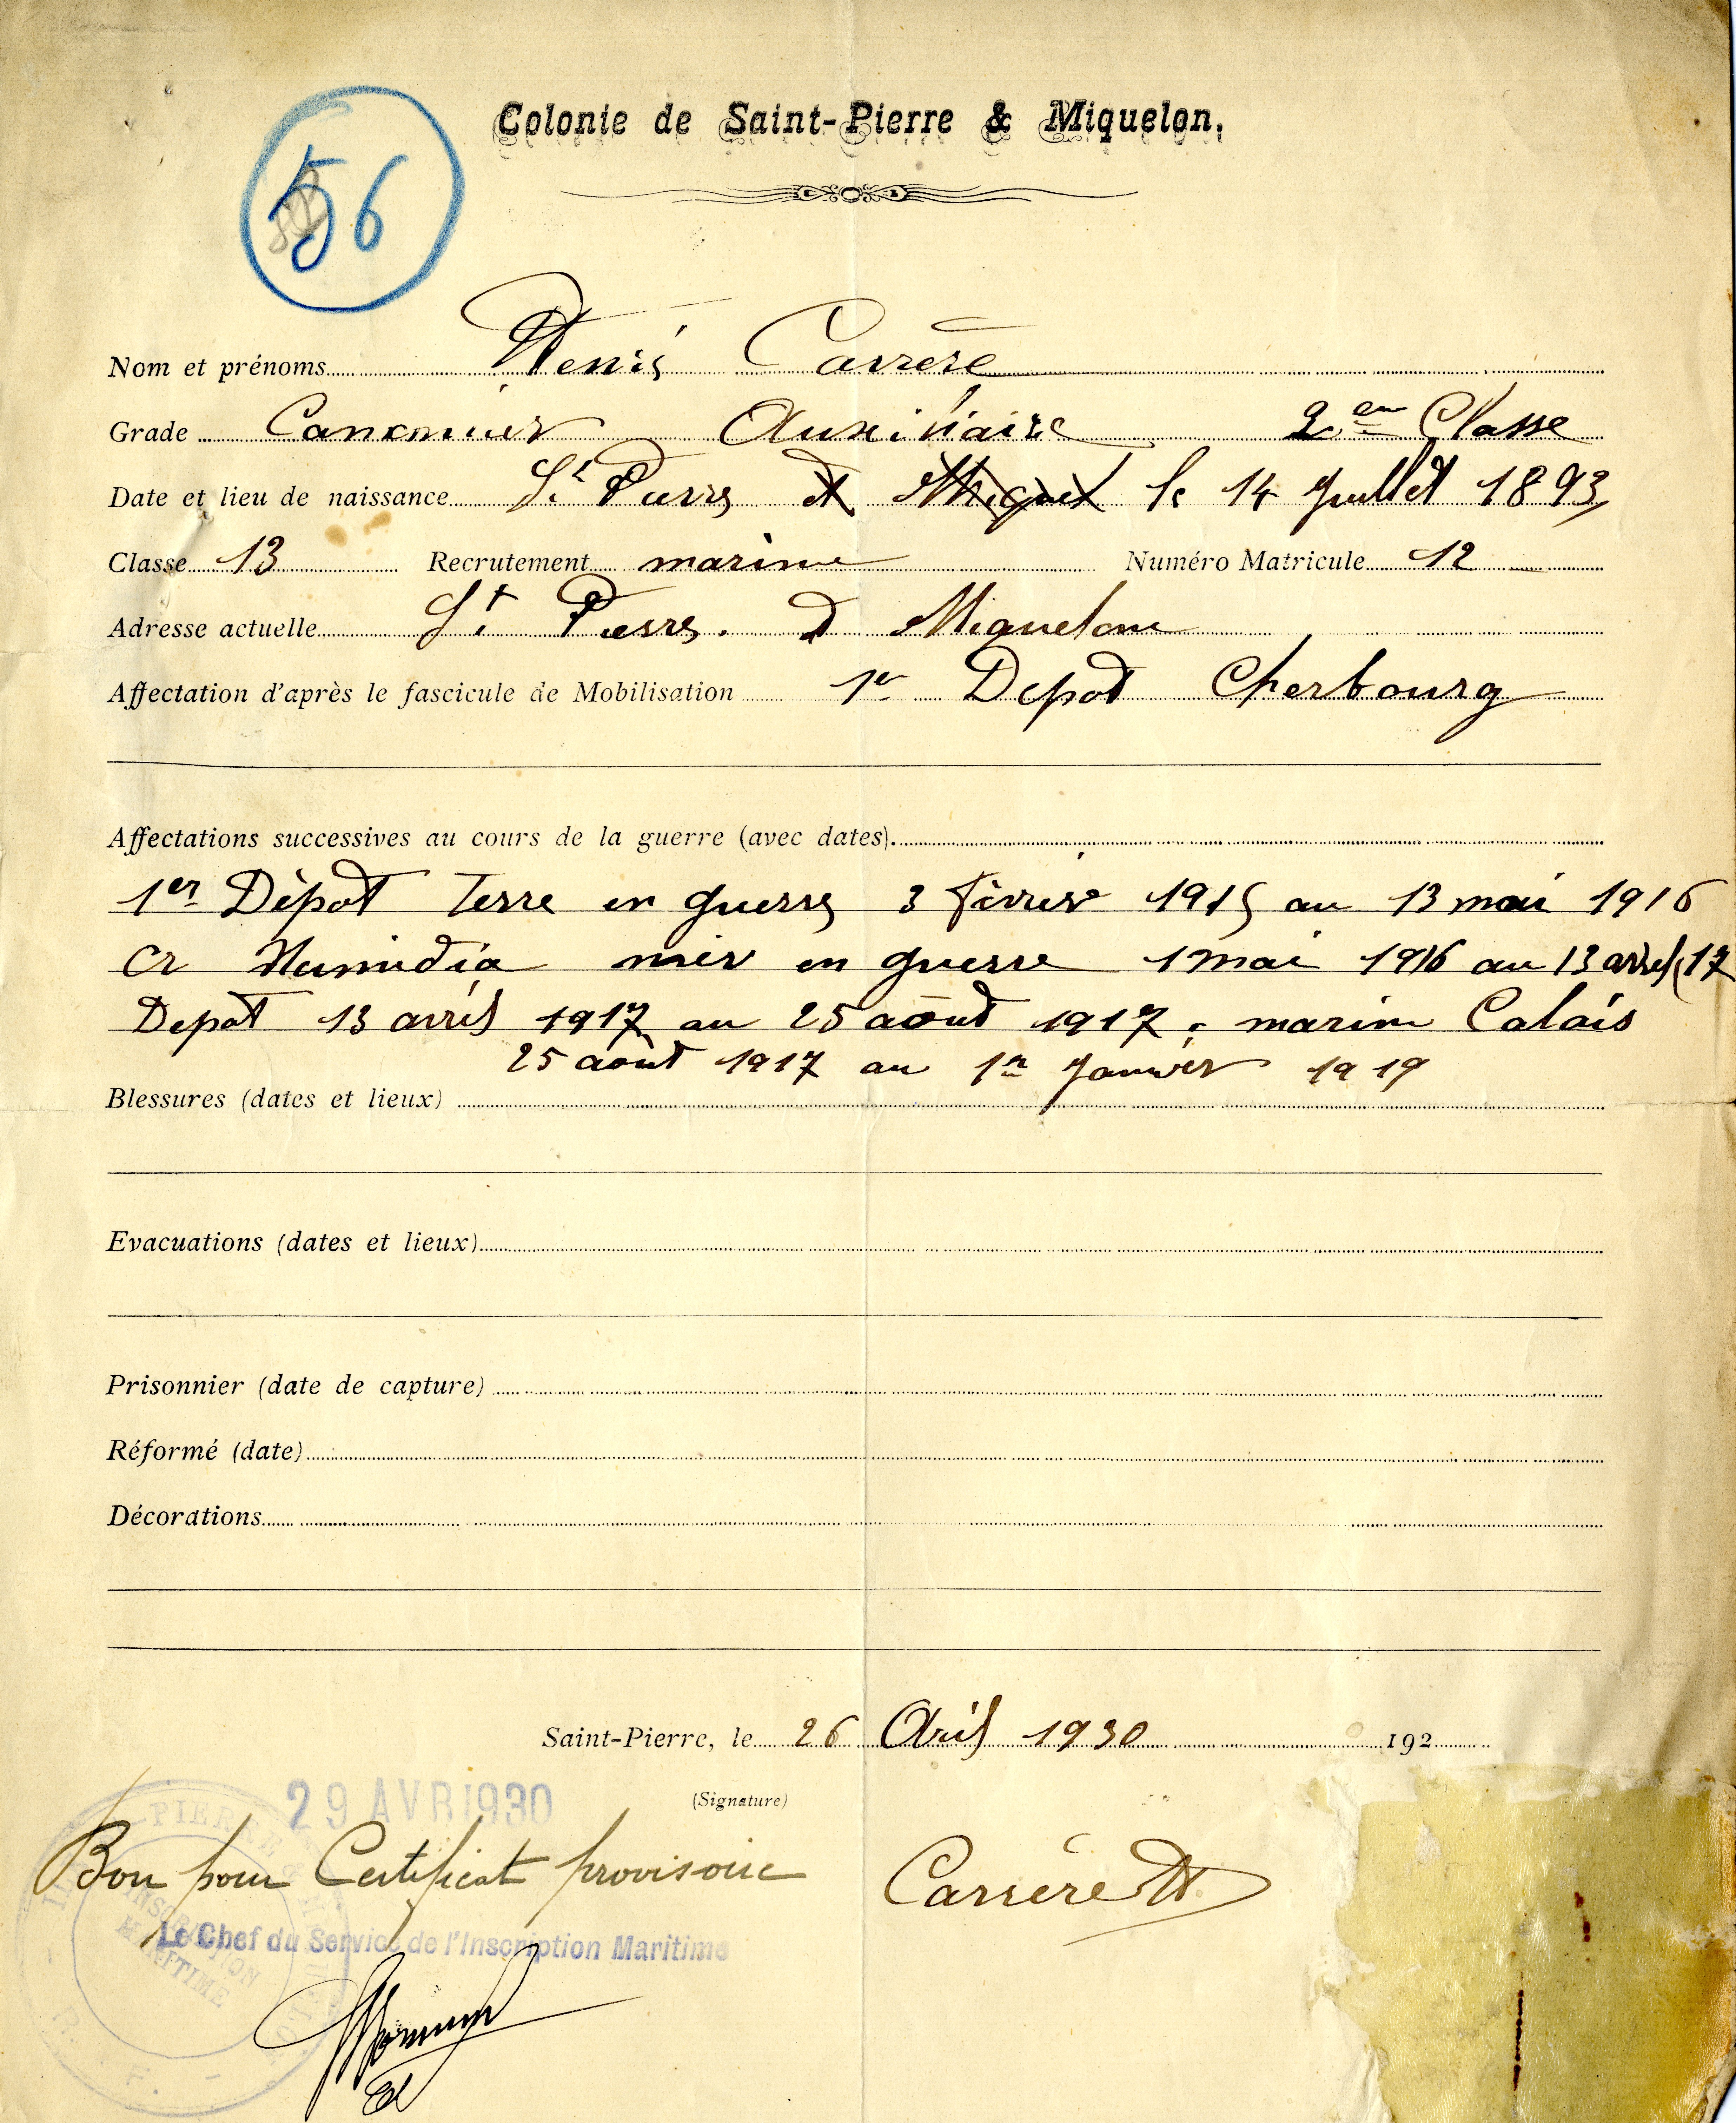 Colonie de Saint-Pierre & Miquelon.
56
Nom et prénoms Denis Carrère
Grade Canonnier Auxiliaire 2em Classe
Date et lieu de naissance St Pierre et Miquel le 14 Juillet 1893
Classe 13 Recrutement marine Numéro Matricule 12
Adresse actuelle St Pierre. et Miquelon
Affectation d'après le fascicule de Mobilisation 1er Depot Cherbourg
Affectations successives au cours de la guerre (avec dates).
1er Dépot Terre en guerre 3 Février 1915 au 13 mai 1916
Cr Numidia mer en guerre 1 mai 1916 au 13 avril 17
Depot 13 avril 1917 au 25 août 1917. marine Calais
25 août 1917 au 1er Janvier 1919
Blessures (dates et lieux)
Evacuations (dates et lieux)
Prisonnier (date de capture)
Réformé (date)
Décorations
Saint-Pierre, le 26 Avril 1930 192
29 AVR 1930
(Signature)
Bon pour Certificat provisoire
Carrère D
Le Chef du Service de l'Inscription Maritime
INSCRIPTION
MARITIME